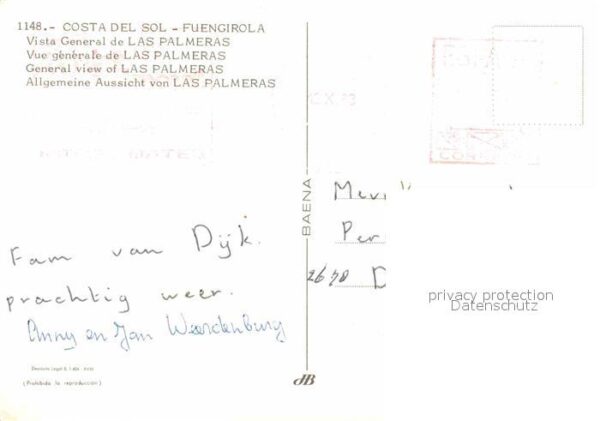 1148.- COSTA DEL SOL - FUENGIROLA
Vista General de LAS PALMERAS
Vue générale de LAS PALMERAS
General view of LAS PALMERAS
Allgemeine Aussicht von LAS PALMERAS
Fam van Dijk.
prachtig weer.
Anny en Jan Weerdenburg
(Prohibida la reproducción)
BAENA
JB
Mev
Per
2640 D
privacy protection
Datenschutz